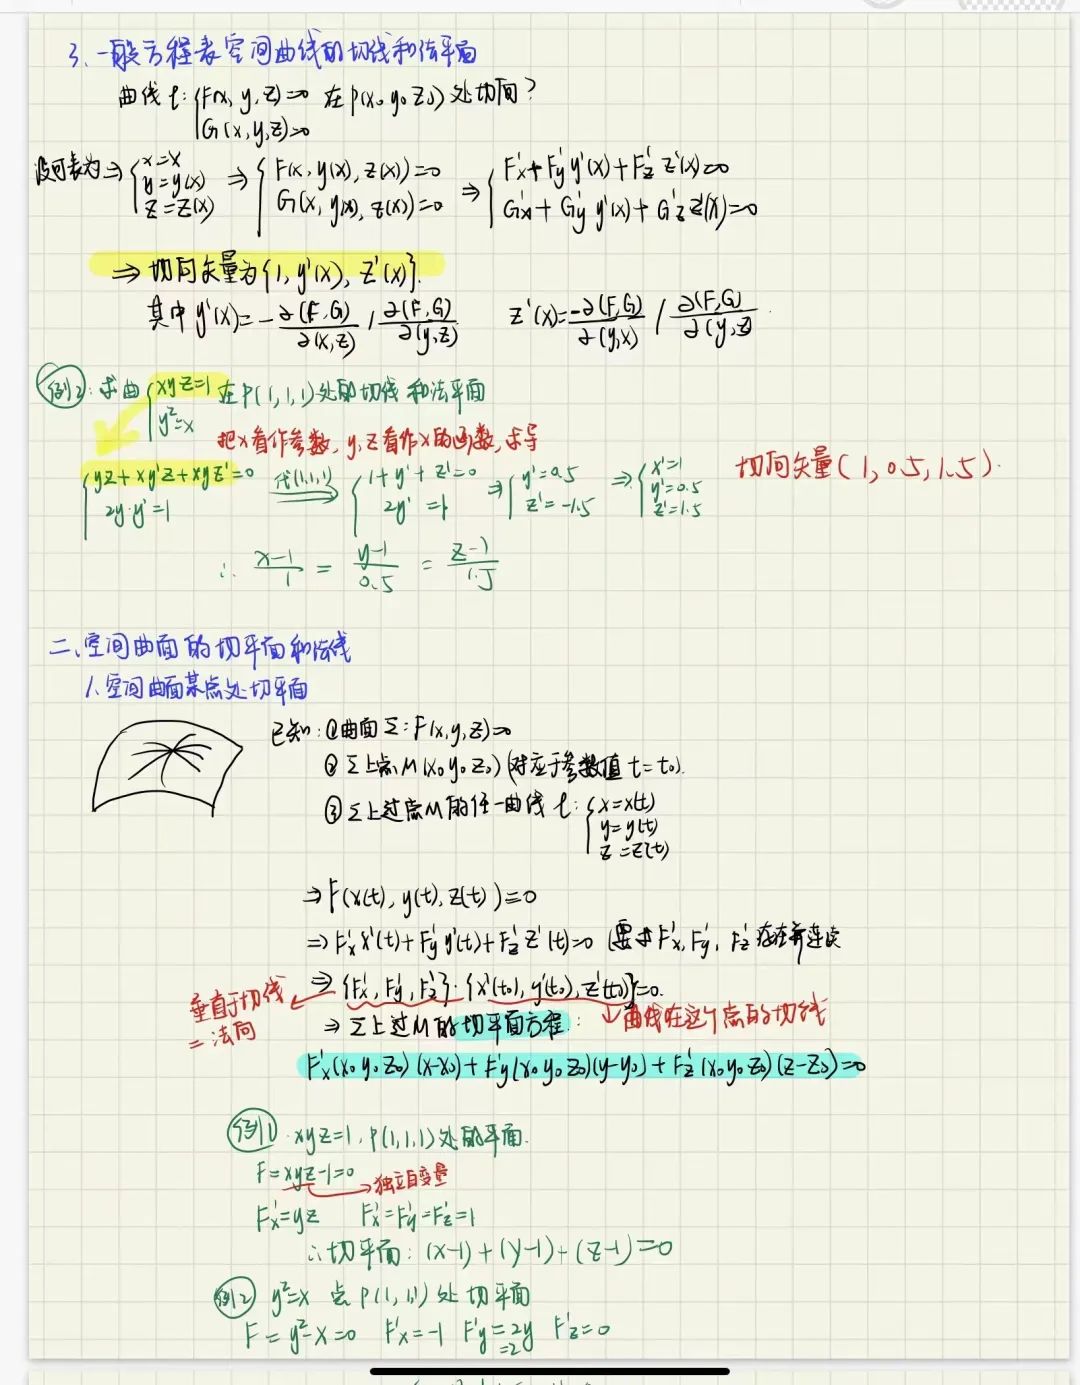 3、一般方程表空间曲线的切线和法平面
曲线 l: { F(x, y, z)=0 在 P(x₀ y₀ z₀) 处切向?
G(x, y, z)=0
设可表为 ⇒ { x=x y=y(x) z=z(x) ⇒ { F(x, y(x), z(x))=0 G(x, y(x), z(x))=0 ⇒ { F'x + F'y y'(x) + F'z z'(x)=0 G'x + G'y y'(x) + G'z z'(x)=0
⇒ 切向矢量为{1, y'(x), z'(x)}.
其中 y'(x)= -∂(F,G)/∂(x,z) / ∂(F,G)/∂(y,z) z'(x)= -∂(F,G)/∂(y,x) / ∂(F,G)/∂(y,z)
例2: 求曲 { xyz=1 在P(1,1,1)处的切线和法平面
y²=x
把x看作参数, y, z看作x的函数, 求导
{ yz+xy'z+xyz'=0 2y·y'=1 代(1,1,1) ⇒ { 1+y'+z'=0 2y'=1 ⇒ { y'=0.5 z'=-1.5 ⇒ { x'=1 y'=0.5 z'=1.5 切向矢量(1, 0.5, 1.5).
∴ (x-1)/1 = (y-1)/0.5 = (z-1)/1.5
二、空间曲面的切平面和法线
1、空间曲面某点处切平面
已知: ①曲面Σ: F(x,y,z)=0
②Σ上点M(x₀ y₀ z₀) (对应于参数值 t=t₀).
③Σ上过点M的任一曲线 l: { x=x(t)
y=y(t)
z=z(t)
⇒ F(x(t), y(t), z(t))=0
⇒ F'x x'(t)+F'y y'(t)+F'z z'(t)=0 (要求F'x, F'y, F'z存在并连续
⇒ {F'x, F'y, F'z}·{x'(t₀), y'(t₀), z'(t₀)}=0.
垂直于切线
=法向
⇒ Σ上过M的切平面方程: ↓曲线在这个点的切线
F'x(x₀ y₀ z₀)(x-x₀)+F'y(x₀ y₀ z₀)(y-y₀)+F'z(x₀ y₀ z₀)(z-z₀)=0
例1 xyz=1, P(1,1,1)处的平面.
F=xyz-1=0 → 独立自变量
F'x=yz F'x=F'y=F'z=1
∴切平面: (x-1)+(y-1)+(z-1)=0
例2 y²=x 点P(1,1,1)处切平面
F=y²-x=0 F'x=-1 F'y=2y F'z=0
=2